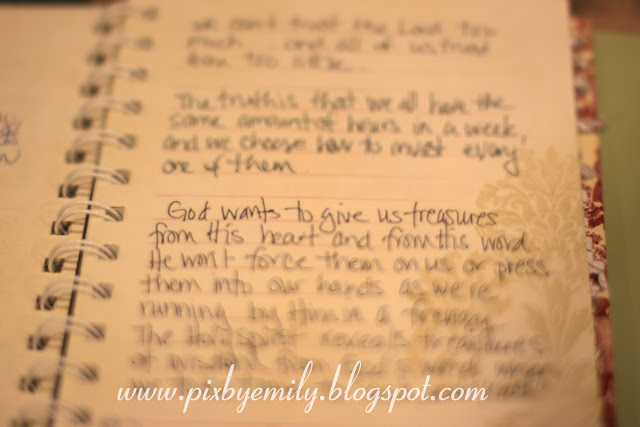 we can't trust the Lord too
much and all of us trust
him too little...
The truth is that we all have the
same amount of hours in a week,
and we choose how to invest every
one of them.
God wants to give us treasures
from His heart and from His word.
He won't force them on us or press
them into our hands as we're
running by Him in a frenzy.
The Holy Spirit reveals treasures
of wisdom words when
www.pixbyemily.blogspot.com